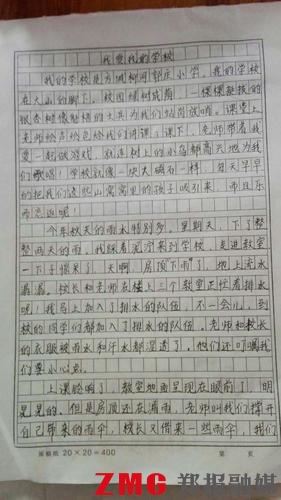 我爱我的学校
我的学校是方城柳河邹庄小学。我的学校
在大山的脚下。校园绿树成荫，一棵棵挺拔的
银杏树像魁梧的士兵为我们站岗放哨。课堂上
老师绘声绘色给我们讲课，课下，老师带着我
爱一起做游戏，就连树上的小鸟都高兴地为我
们歌唱！学校就像一块大磁石一样，每天早早
的把我们这些山窝窝里的孩子吸引来，而且乐
而忘返呢！
今年秋天的雨水特别多。星期天，下了整
整两天的雨。我踩着泥泞来到学校，走进教室
一下子惊呆了，天啊，房顶下雨了，地上流水
潺潺。校长和老师在楼上三个教室正忙着排水
呢！我马上加入了排水的队伍，不一会儿，到
校的同学们都加入了排水的队伍。老师和校长
的衣服被雨水和汗水都湿透了，他们还叮嘱我
们要小心点。
上课铃响了，教室地面呈现在眼前了，明
晃晃的。但是房顶还在滴雨，老师叫我们撑开
自己带来的雨伞，校长又借来一些雨伞，我们
原稿纸 20×20=400 第 页
ZMG 郑报融媒